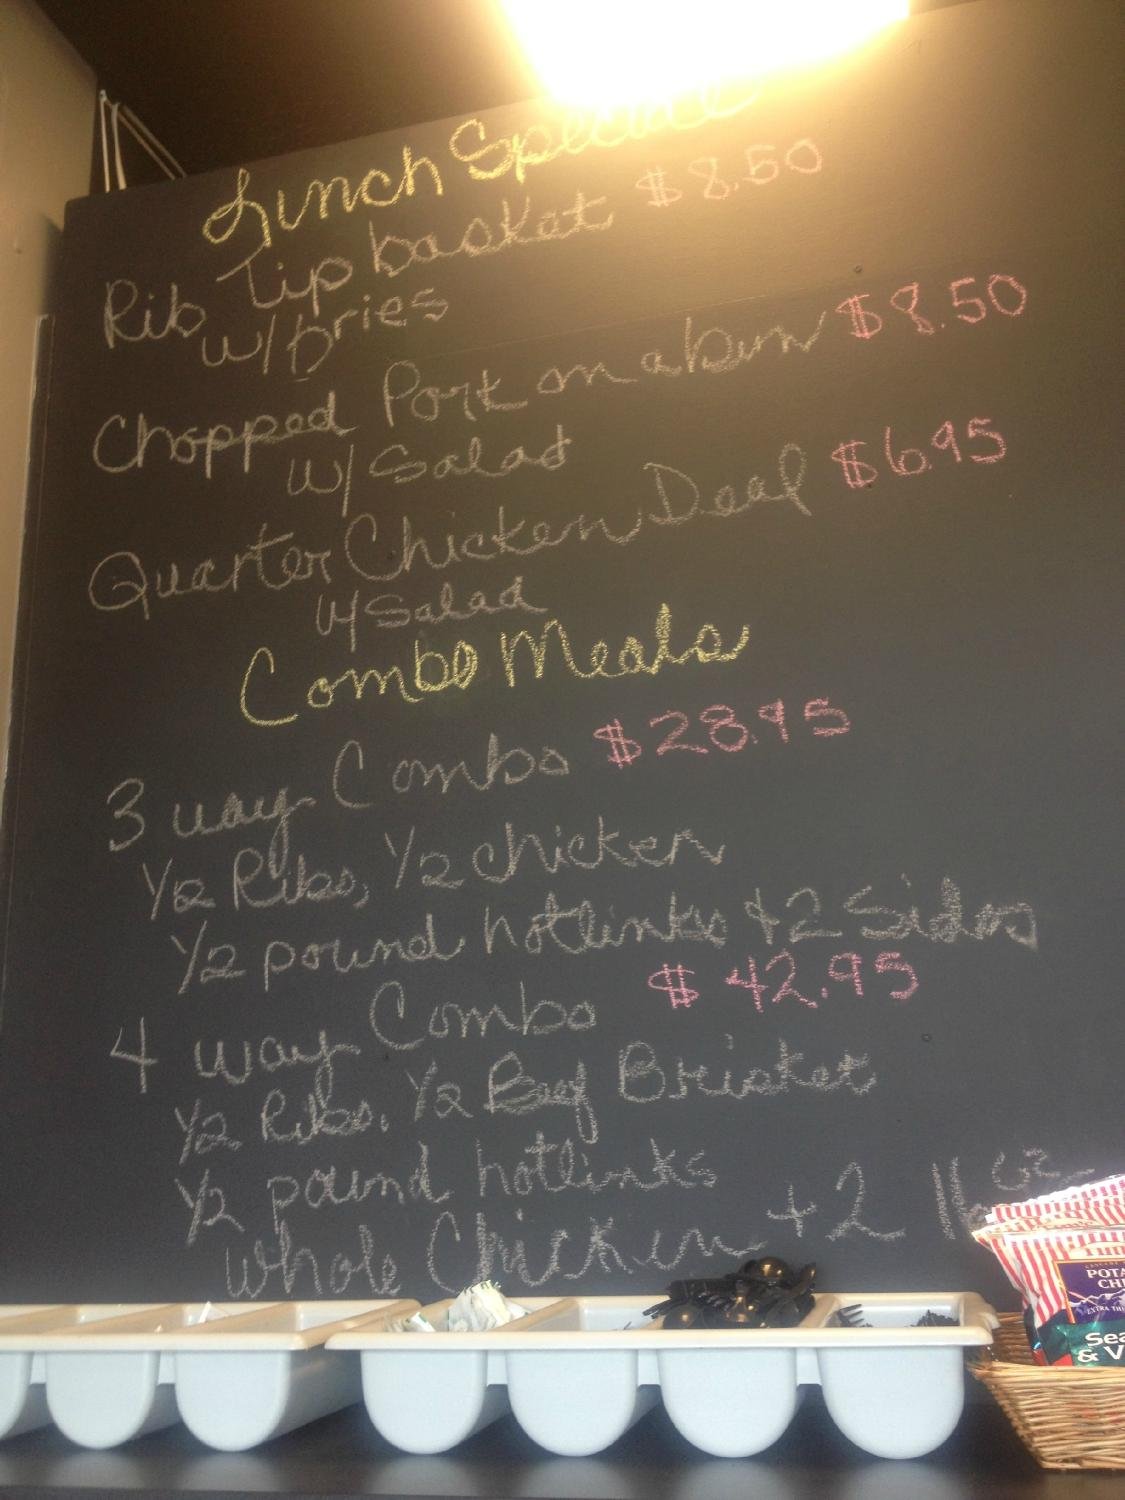 Lunch Special
Rib Tip basket $8.50
w/ Fries
Chopped Pork on a bun $8.50
w/ Salad
Quarter Chicken Deal $6.95
w/ Salad
Combo Meals
3 way Combo $28.95
1/2 Ribs, 1/2 chicken
1/2 pound hotlinks + 2 Sides
4 way Combo $42.95
1/2 Ribs, 1/2 Beef Brisket
1/2 pound hotlinks
whole Chicken + 2
POTA
CHI
Sea
& V